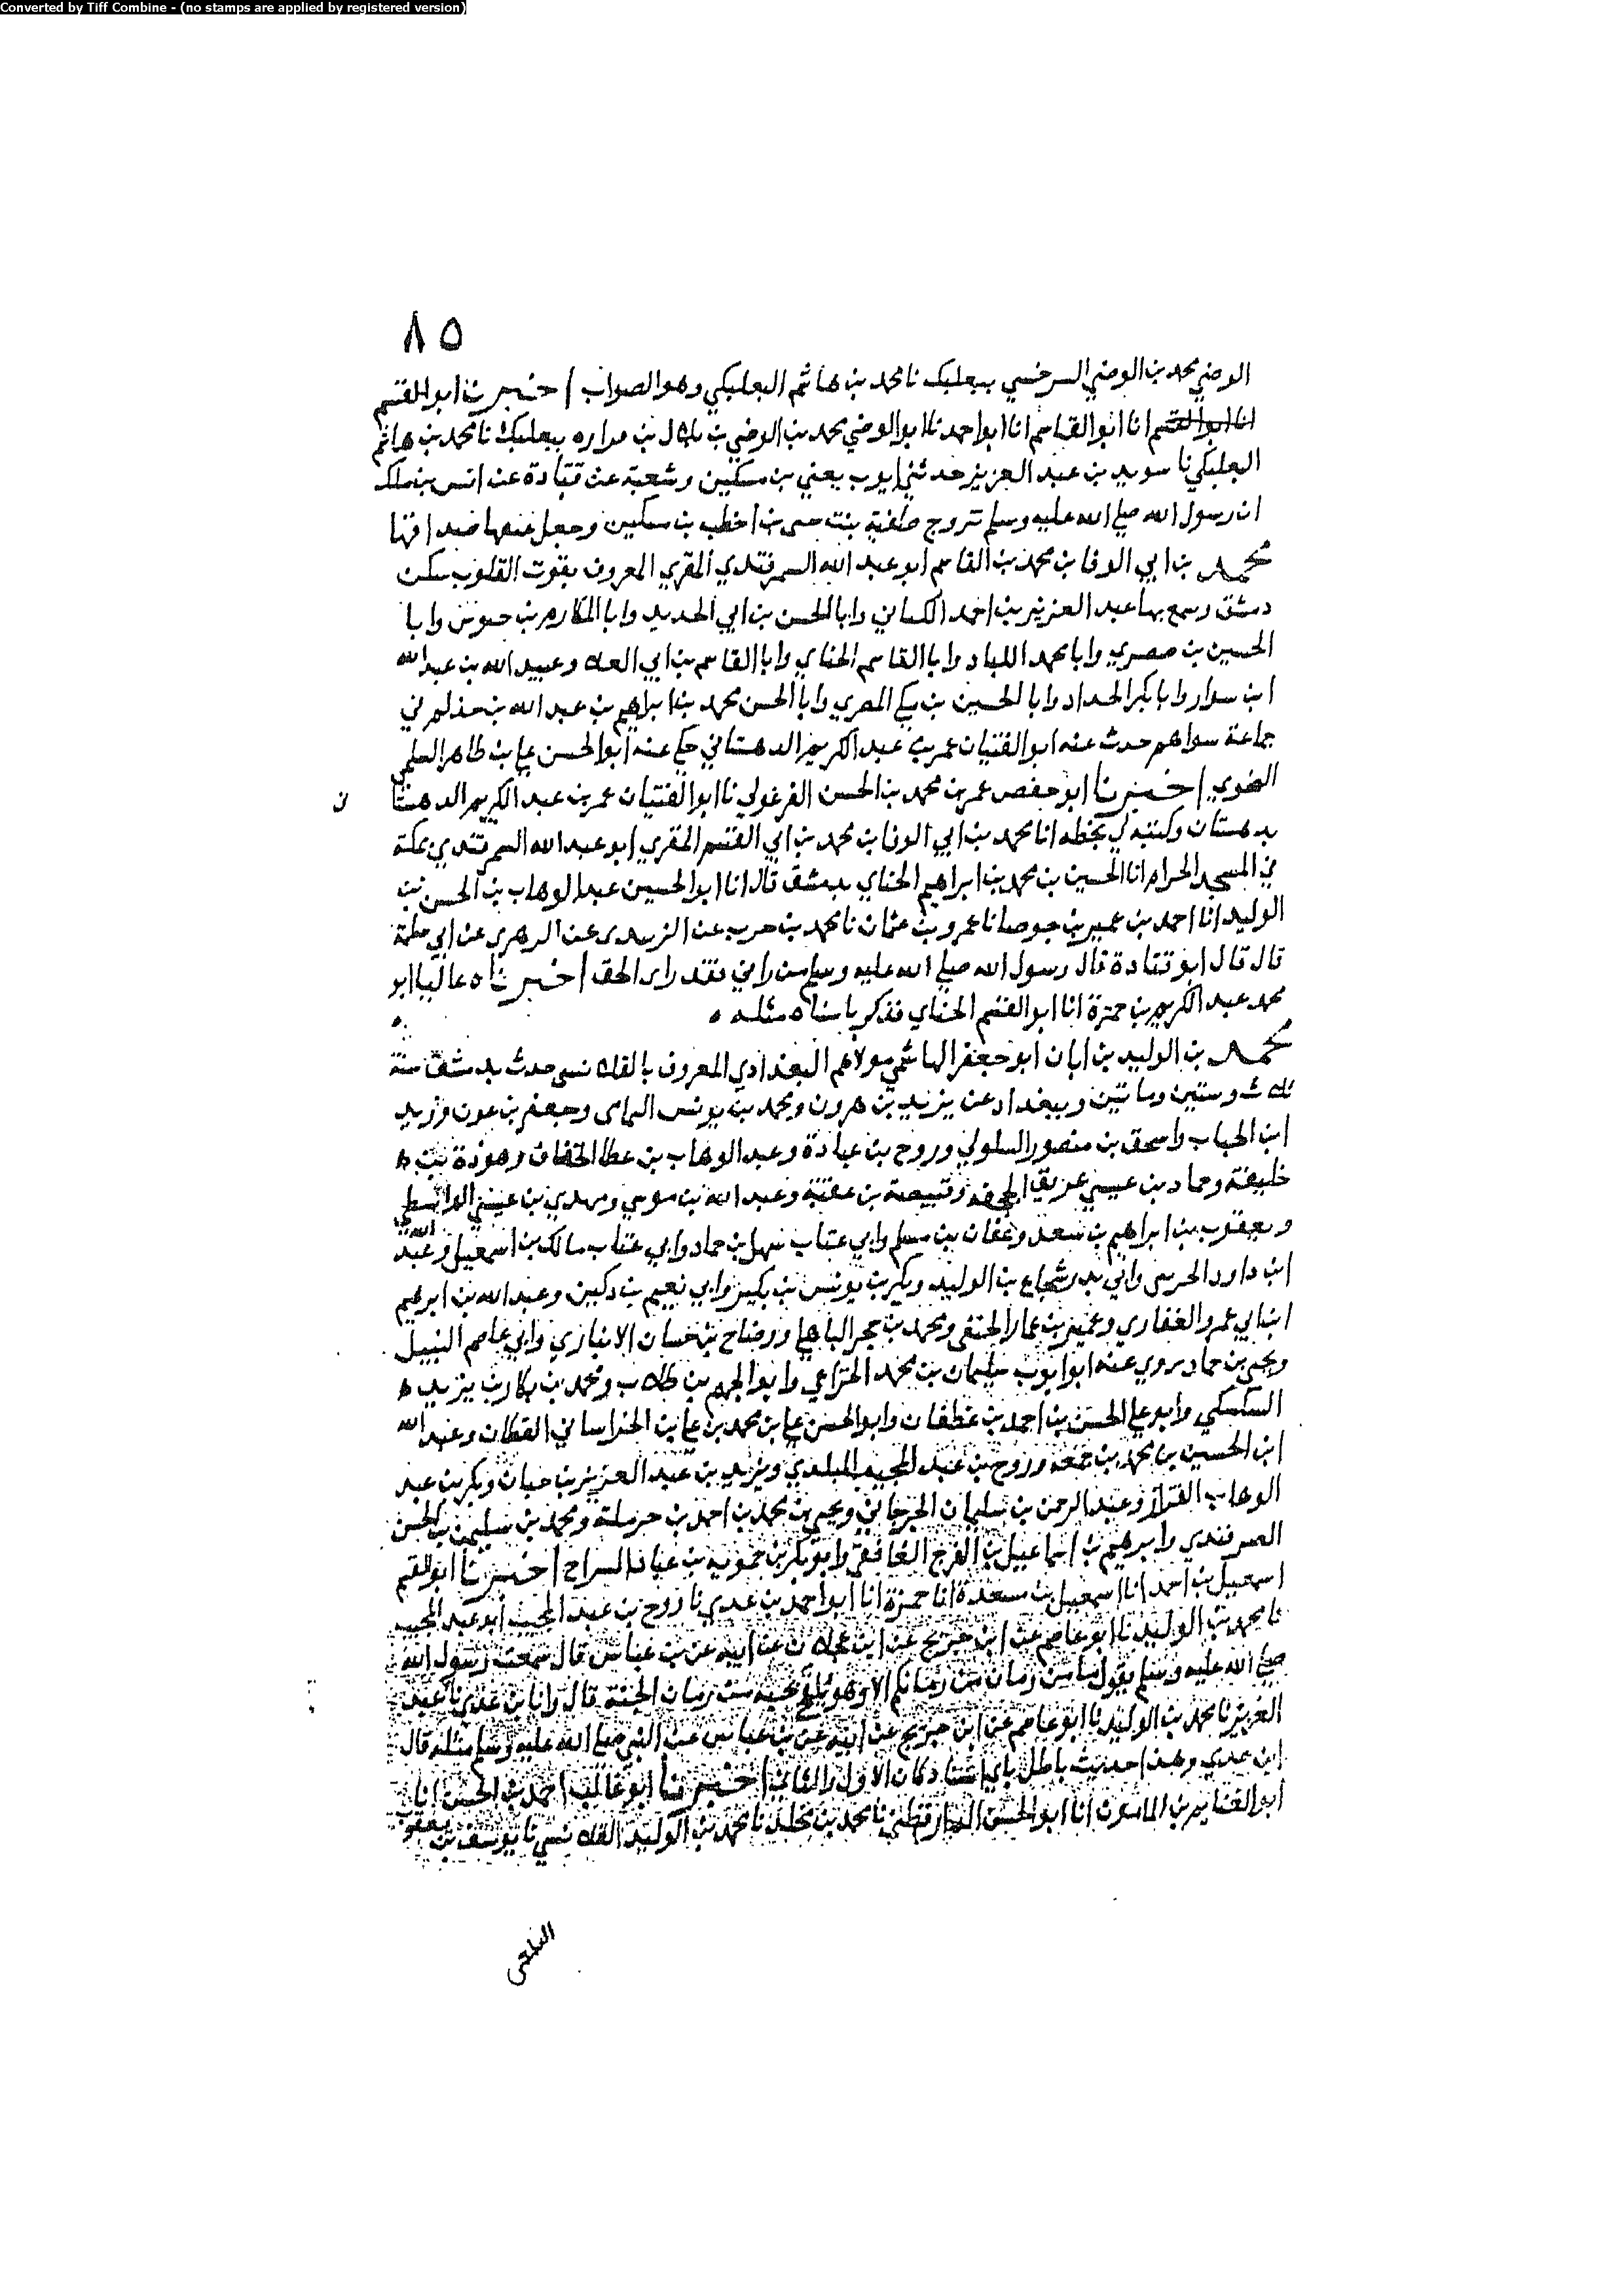 Converted by Tiff Combine - (no stamps are applied by registered version)
٨٥
الوضي محمد بن الوضي السرخسي ببعلبك نا محمد بن هاشم البعلبكي وهو الصواب اخبرنا ابو القسم
انا ابو القسم انا ابو القاسم انا ابو احمد نا ابو الوضي محمد بن الوضي بن بلال بن مراره ببعلبك نا محمد بن هاشم
البعلبكي نا سويد بن عبد العزيز حدثني ايوب يعني بن مسكين وشعبة عن قتادة عن انس بن ملك
ان رسول الله صلى الله عليه وسلم تزوج صفية بنت حيى بن اخطب بن مسكين وجعل عتقها صداقها
محمد بن ابي الوفا بن محمد بن القاسم ابو عبد الله السمرقندي المقري المعروف بقوت القلوب سكن
دمشق وسمع بها عبد العزيز بن احمد الكتاني وابا الحسن بن ابي الحديد وابا المكارم بن حيوس وابا
الحسين بن مصري وابا محمد اللباد وابا القاسم الحناي وابا القاسم بن ابي العلا وعبيد الله بن عبد الله
ابن سوار وابا بكر الحداد وابا الحسين بن مكي المصري وابا الحسن محمد بن ابراهيم بن عبد الله بن حذلم في
جماعة سواهم حدث عنه ابو الفتيان عمر بن عبد الكريم الدهستاني حكى عنه ابو الحسن علي بن طاهر السلمي
النحوي اخبرنا ابو حفص عمر بن محمد بن الحسن الفرغولي نا ابو الفتيان عمر بن عبد الكريم الدهستا
ن
بدهستان وكتبه لي بخطه انا محمد بن ابي الوفا بن محمد بن ابي القسم المقري ابو عبد الله السمرقندي بمكة
في المسجد الحرام انا الحسين بن محمد بن ابراهيم الحناي بدمشق قال انا ابو الحسين عبد الوهاب بن الحسن بن
الوليد انا احمد بن عمير بن جوصا نا عمرو بن عثمان نا محمد بن حرب عن الزبيدى عن الزهري عن ابي سلمة
قال قال ابو قتادة قال رسول الله صلى الله عليه وسلم من راني فقد راى الحق اخبرناه عاليا ابو
محمد عبد الكريم بن حمزة انا ابو القسم الحناي فذكر باسناده مثله ه
محمد بن الوليد بن ابان ابو جعفر الهاشمي مولاهم البغدادي المعروف بالقلانسي حدث بدمشق سنة
ثلاث وستين وماتين وببغداد عن يزيد بن هرون ومحمد بن يونس اليمامى وجعفر بن عون وزيد
ابن الحباب واسحق بن منصور السلولي وروح بن عبادة وعبد الوهاب بن عطا الخفاف وهوذة بن
خليفة وحماد بن عيسى غريق الجحفة وقبيصة بن عقبة وعبد الله بن موسى ومهدي بن عيسى الواسطي
ويعقوب بن ابراهيم بن سعد وعفان بن مسلم وابي عتاب سهل بن حماد وابي غسان مالك بن اسمعيل وعبد الله
ابن داود الخريبى وابي بدر شجاع بن الوليد وبكر بن يونس بن بكير وابي نعيم بن دكين وعبد الله بن ابرهيم
ابن ابي عمرو الغفاري وعمير بن عمار الحنفى ومحمد بن حجر الباهلي ووضاح بن حسان الانباري وابي عاصم النبيل
ويحيى بن حماد يروي عنه ابو ايوب سليمان بن محمد الخزاعي وابو الجهم بن طلاب ومحمد بن بكار بن يزيد
السكسكي وابو علي الحسن بن احمد بن غطفان وابو الحسن علي بن محمد بن علي بن الخراساني القطان وعبد الله
ابن الحسين بن محمد بن جمعه وروح بن عبد المجيب البلدي ويزيد بن عبد العزيز بن حيان وبكر بن عبد
الوهاب القزاز وعبد الرحمن بن سليمان الجرجاني ويحيى بن محمد بن احمد بن حرملة ومحمد بن سليمن بن الحسن
الصرفندي وابرهيم بن اسماعيل بن الفرج الغافقي وابو بكر بن حمويه بن عباد السراج اخبرنا ابو القسم
اسمعيل بن احمد انا اسمعيل بن مسعدة انا حمزة انا ابو احمد بن عدي نا روح بن عبد المجيب ابو عبد المجيب
نا محمد بن الوليد نا ابو عاصم عن ابن جريج عن ابن عجلان عن ابيه عن بن عباس قال سمعت رسول الله
صلى الله عليه وسلم يقول ما من رمان من رمانكم الا وهو يلقح بحبه من رمان الجنة قال وانا بن عدي نا عبد
العزيز نا محمد بن الوليد نا ابو عاصم عن ابن جريج عن ابيه عن بن عباس عن النبي صلى الله عليه وسلم مثله قال
ابن عدي وهذا حديث باطل باي اسناد كان الاول والثاني اخبرنا ابو غالب احمد بن الحسن انا
ابو الغنايم بن المامون انا ابو الحسن الدارقطني نا محمد بن مخلد نا محمد بن الوليد القلانسي نا يوسف بن يعقوب